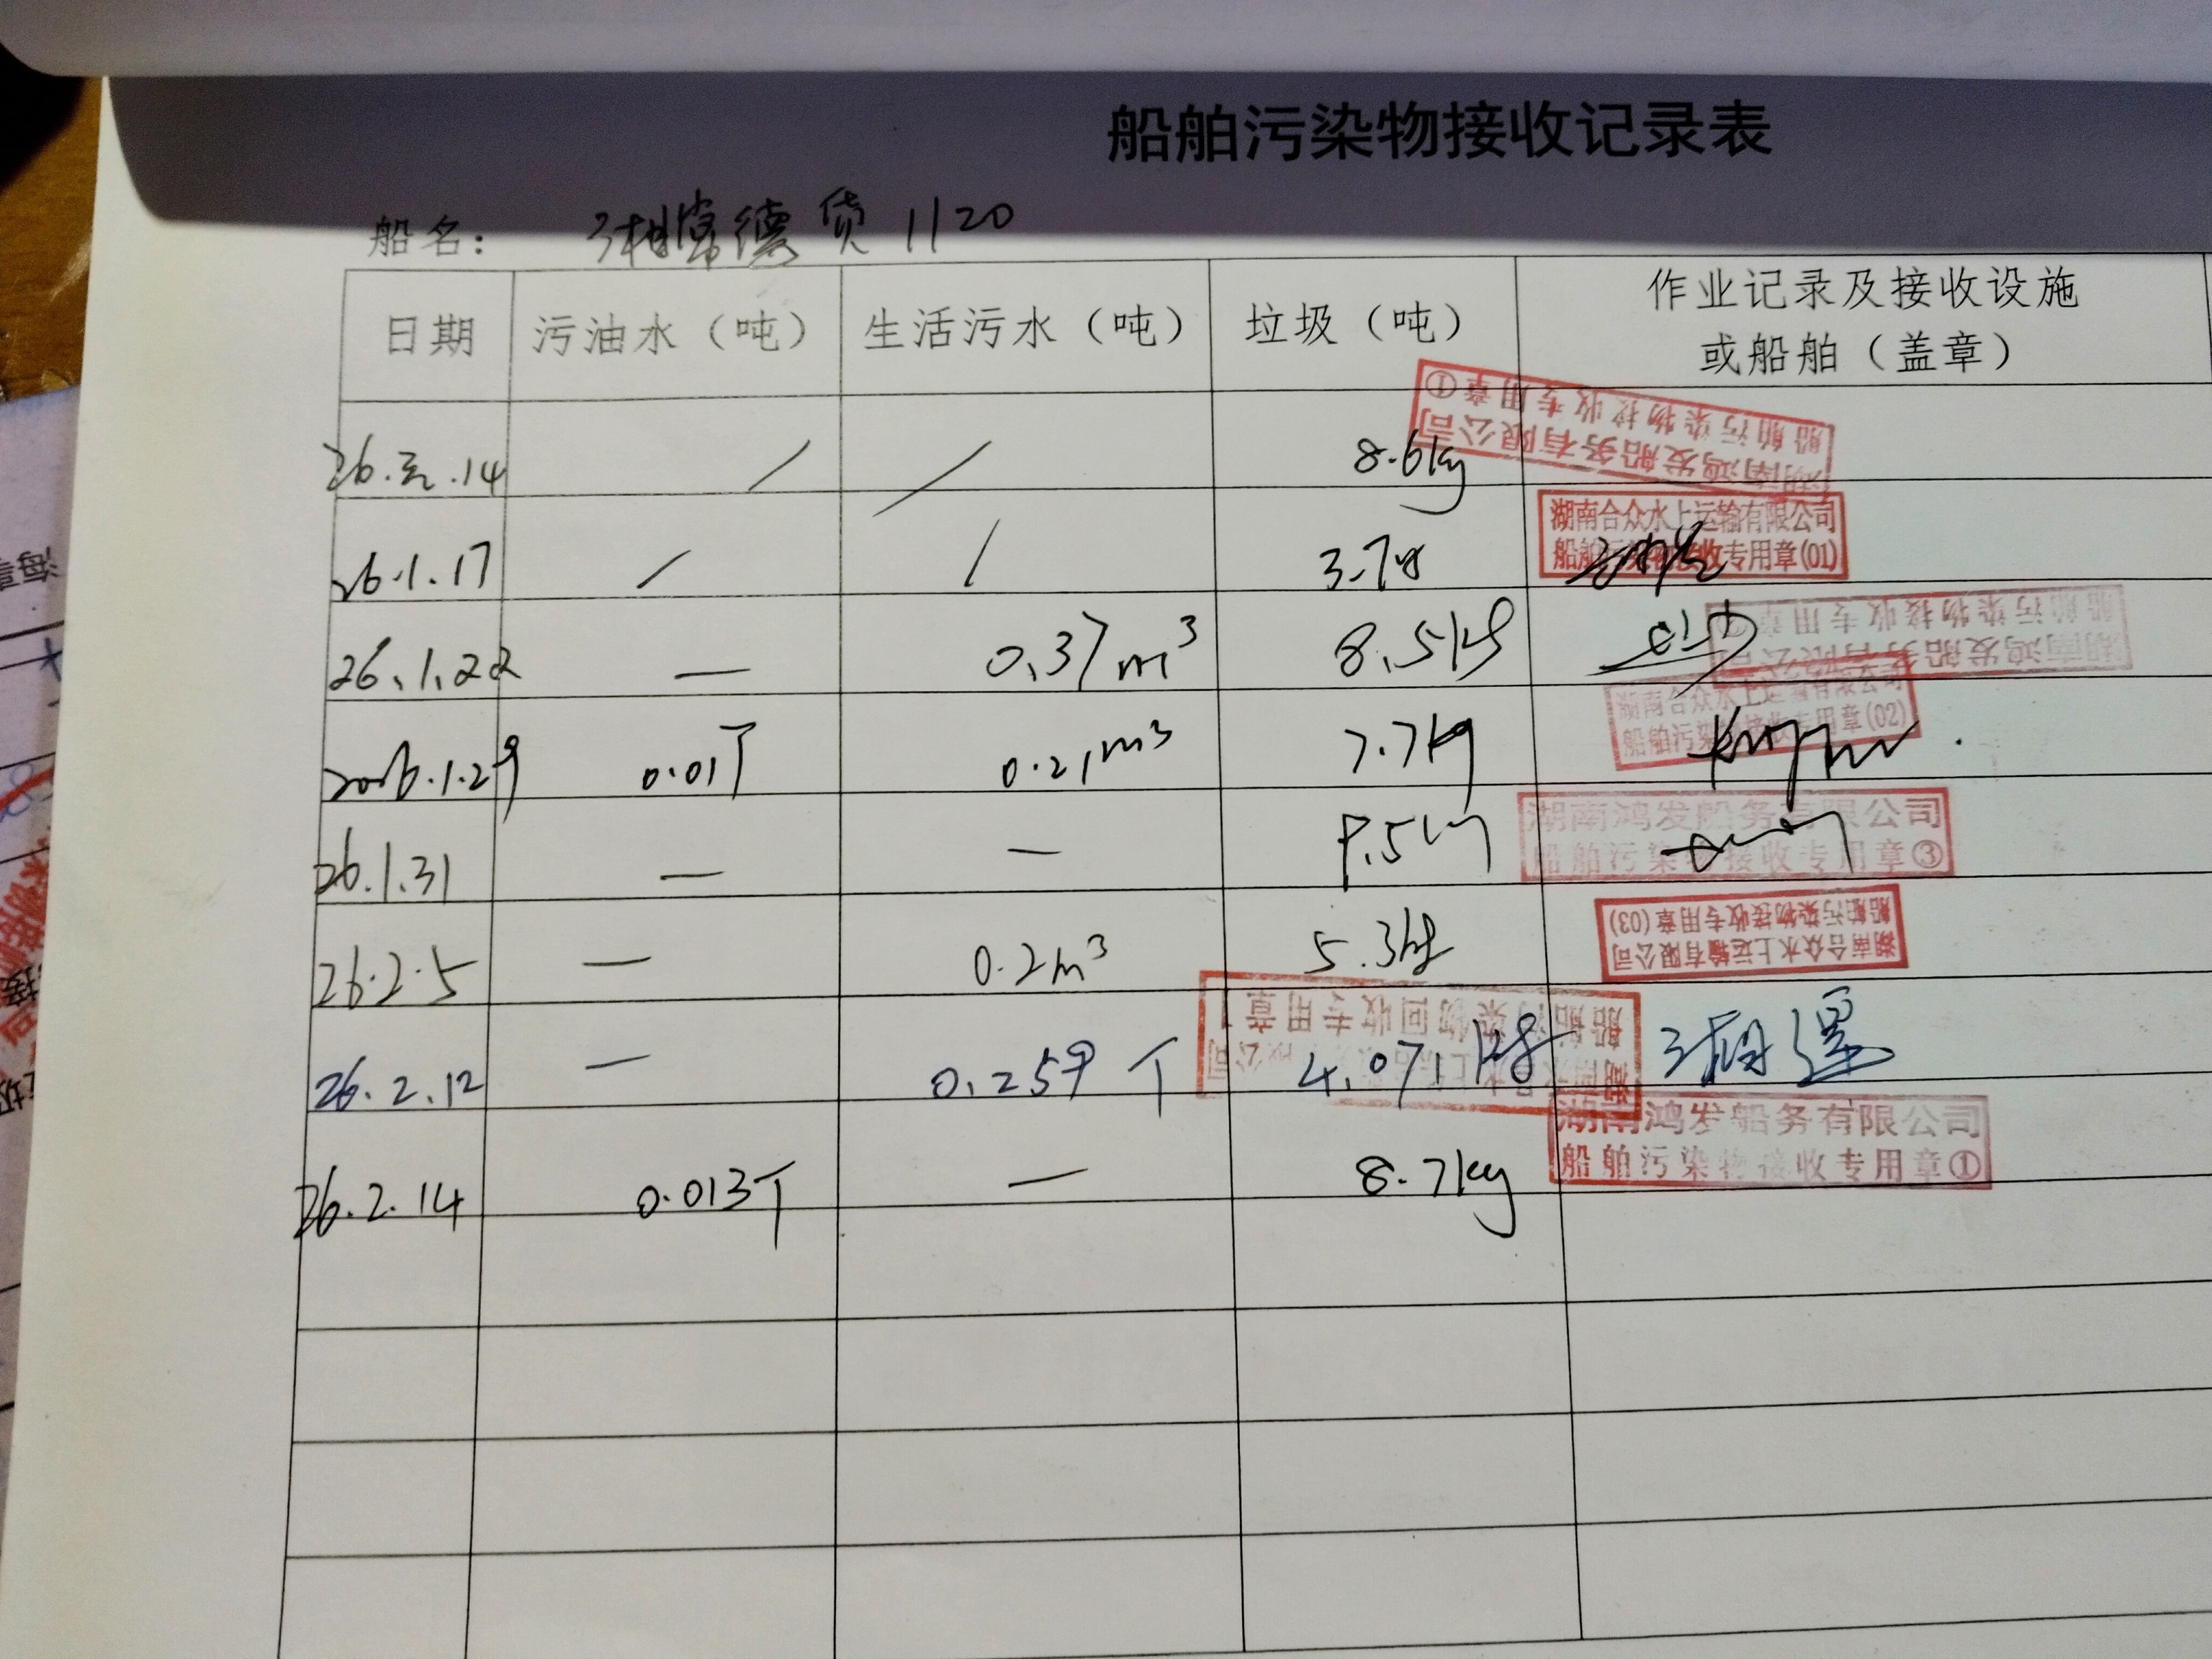 船舶污染物接收记录表
船名： 湘常德货1120
日期 污油水（吨） 生活污水（吨） 垃圾（吨） 作业记录及接收设施
或船舶（盖章）
湖南鸿发船务有限公司
船舶污染物接收专用章①
26.元.14 / / 8.6kg
湖南合众水上运输有限公司
船舶污染物接收专用章(01)
26.1.17 / / 3.7kg
湖南鸿发船务有限公司
船舶污染物接收专用章
26.1.22 — 0.37m³ 8.5kg
湖南合众水上运输有限公司
船舶污染物接收专用章(02)
2026.1.29 0.01T 0.21m³ 7.7kg
湖南鸿发船务有限公司
船舶污染物接收专用章③
26.1.31 — — 9.5kg
湖南合众水上运输有限公司
船舶污染物接收专用章(03)
26.2.5 — 0.2m³ 5.3kg
船舶污染物回收专用章1
26.2.12 — 0.259T 4.071kg
湖南鸿发船务有限公司
船舶污染物接收专用章①
26.2.14 0.013T — 8.7kg